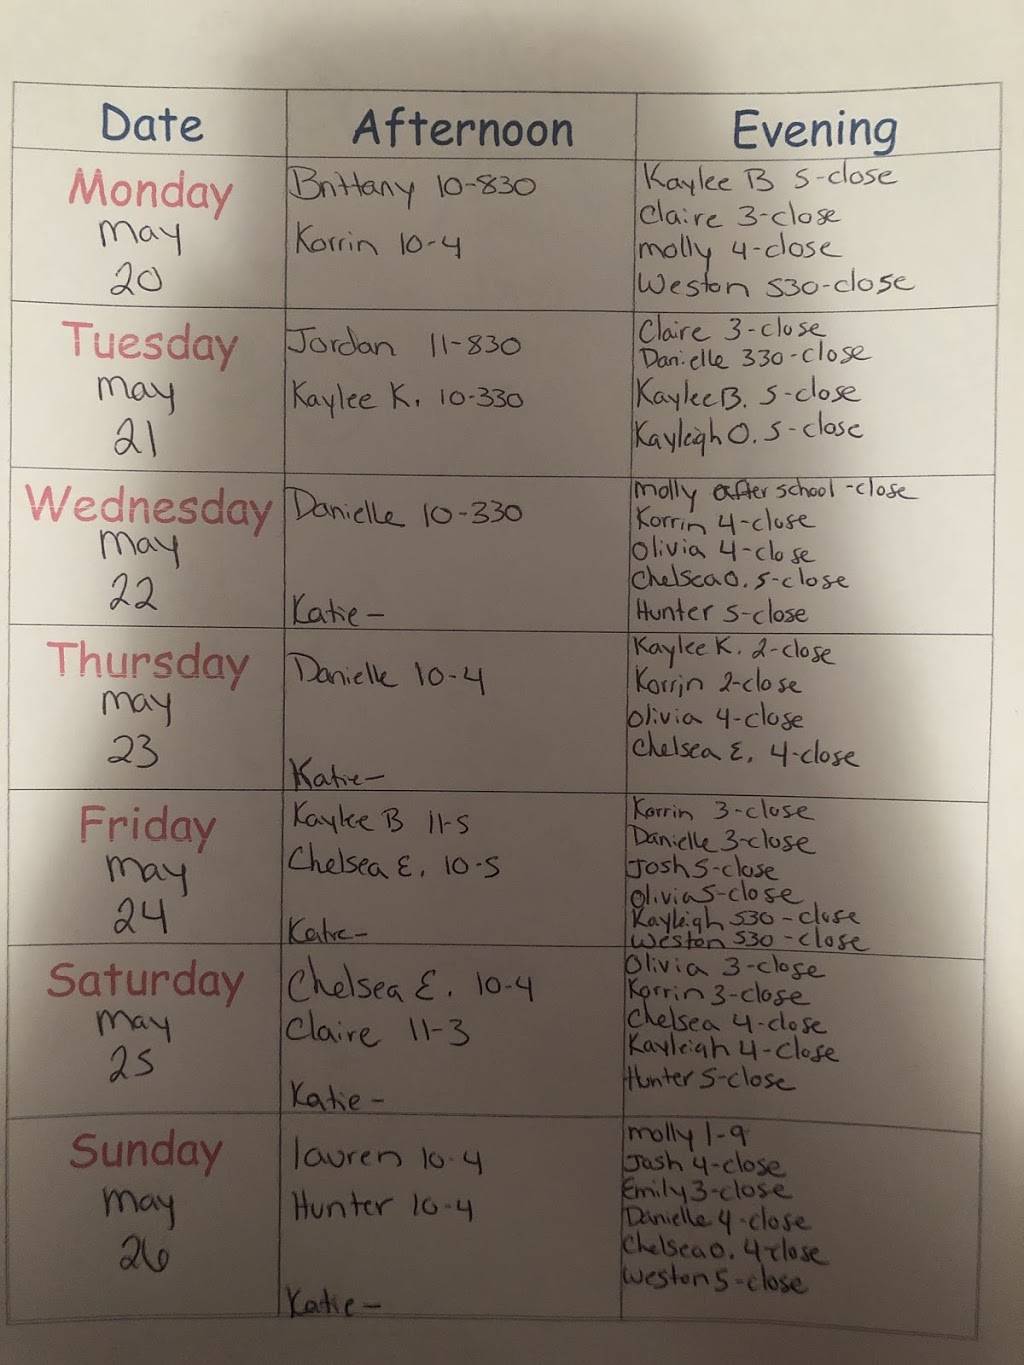 Date Afternoon Evening
Monday
May
20
Brittany 10-830
Korrin 10-4
Kaylee B 5-close
Claire 3-close
Molly 4-close
Weston 530-close
Tuesday
May
21
Jordan 11-830
Kaylee K. 10-330
Claire 3-close
Danielle 330-close
Kaylee B. 5-close
Kayleigh O. 5-close
Wednesday
May
22
Danielle 10-330
Katie-
Molly after school-close
Korrin 4-close
Olivia 4-close
Chelsea O. 5-close
Hunter 5-close
Thursday
May
23
Danielle 10-4
Katie-
Kaylee K. 2-close
Korrin 2-close
Olivia 4-close
Chelsea E. 4-close
Friday
May
24
Kaylee B 11-5
Chelsea E. 10-5
Katie-
Korrin 3-close
Danielle 3-close
Josh 5-close
Olivia 5-close
Kayleigh 530-close
Weston 530-close
Saturday
May
25
Chelsea E. 10-4
Claire 11-3
Katie-
Olivia 3-close
Korrin 3-close
Chelsea 4-close
Kayleigh 4-close
Hunter 5-close
Sunday
May
26
lauren 10-4
Hunter 10-4
Katie-
Molly 1-9
Josh 4-close
Emily 3-close
Danielle 4-close
Chelsea O. 4-close
Weston 5-close